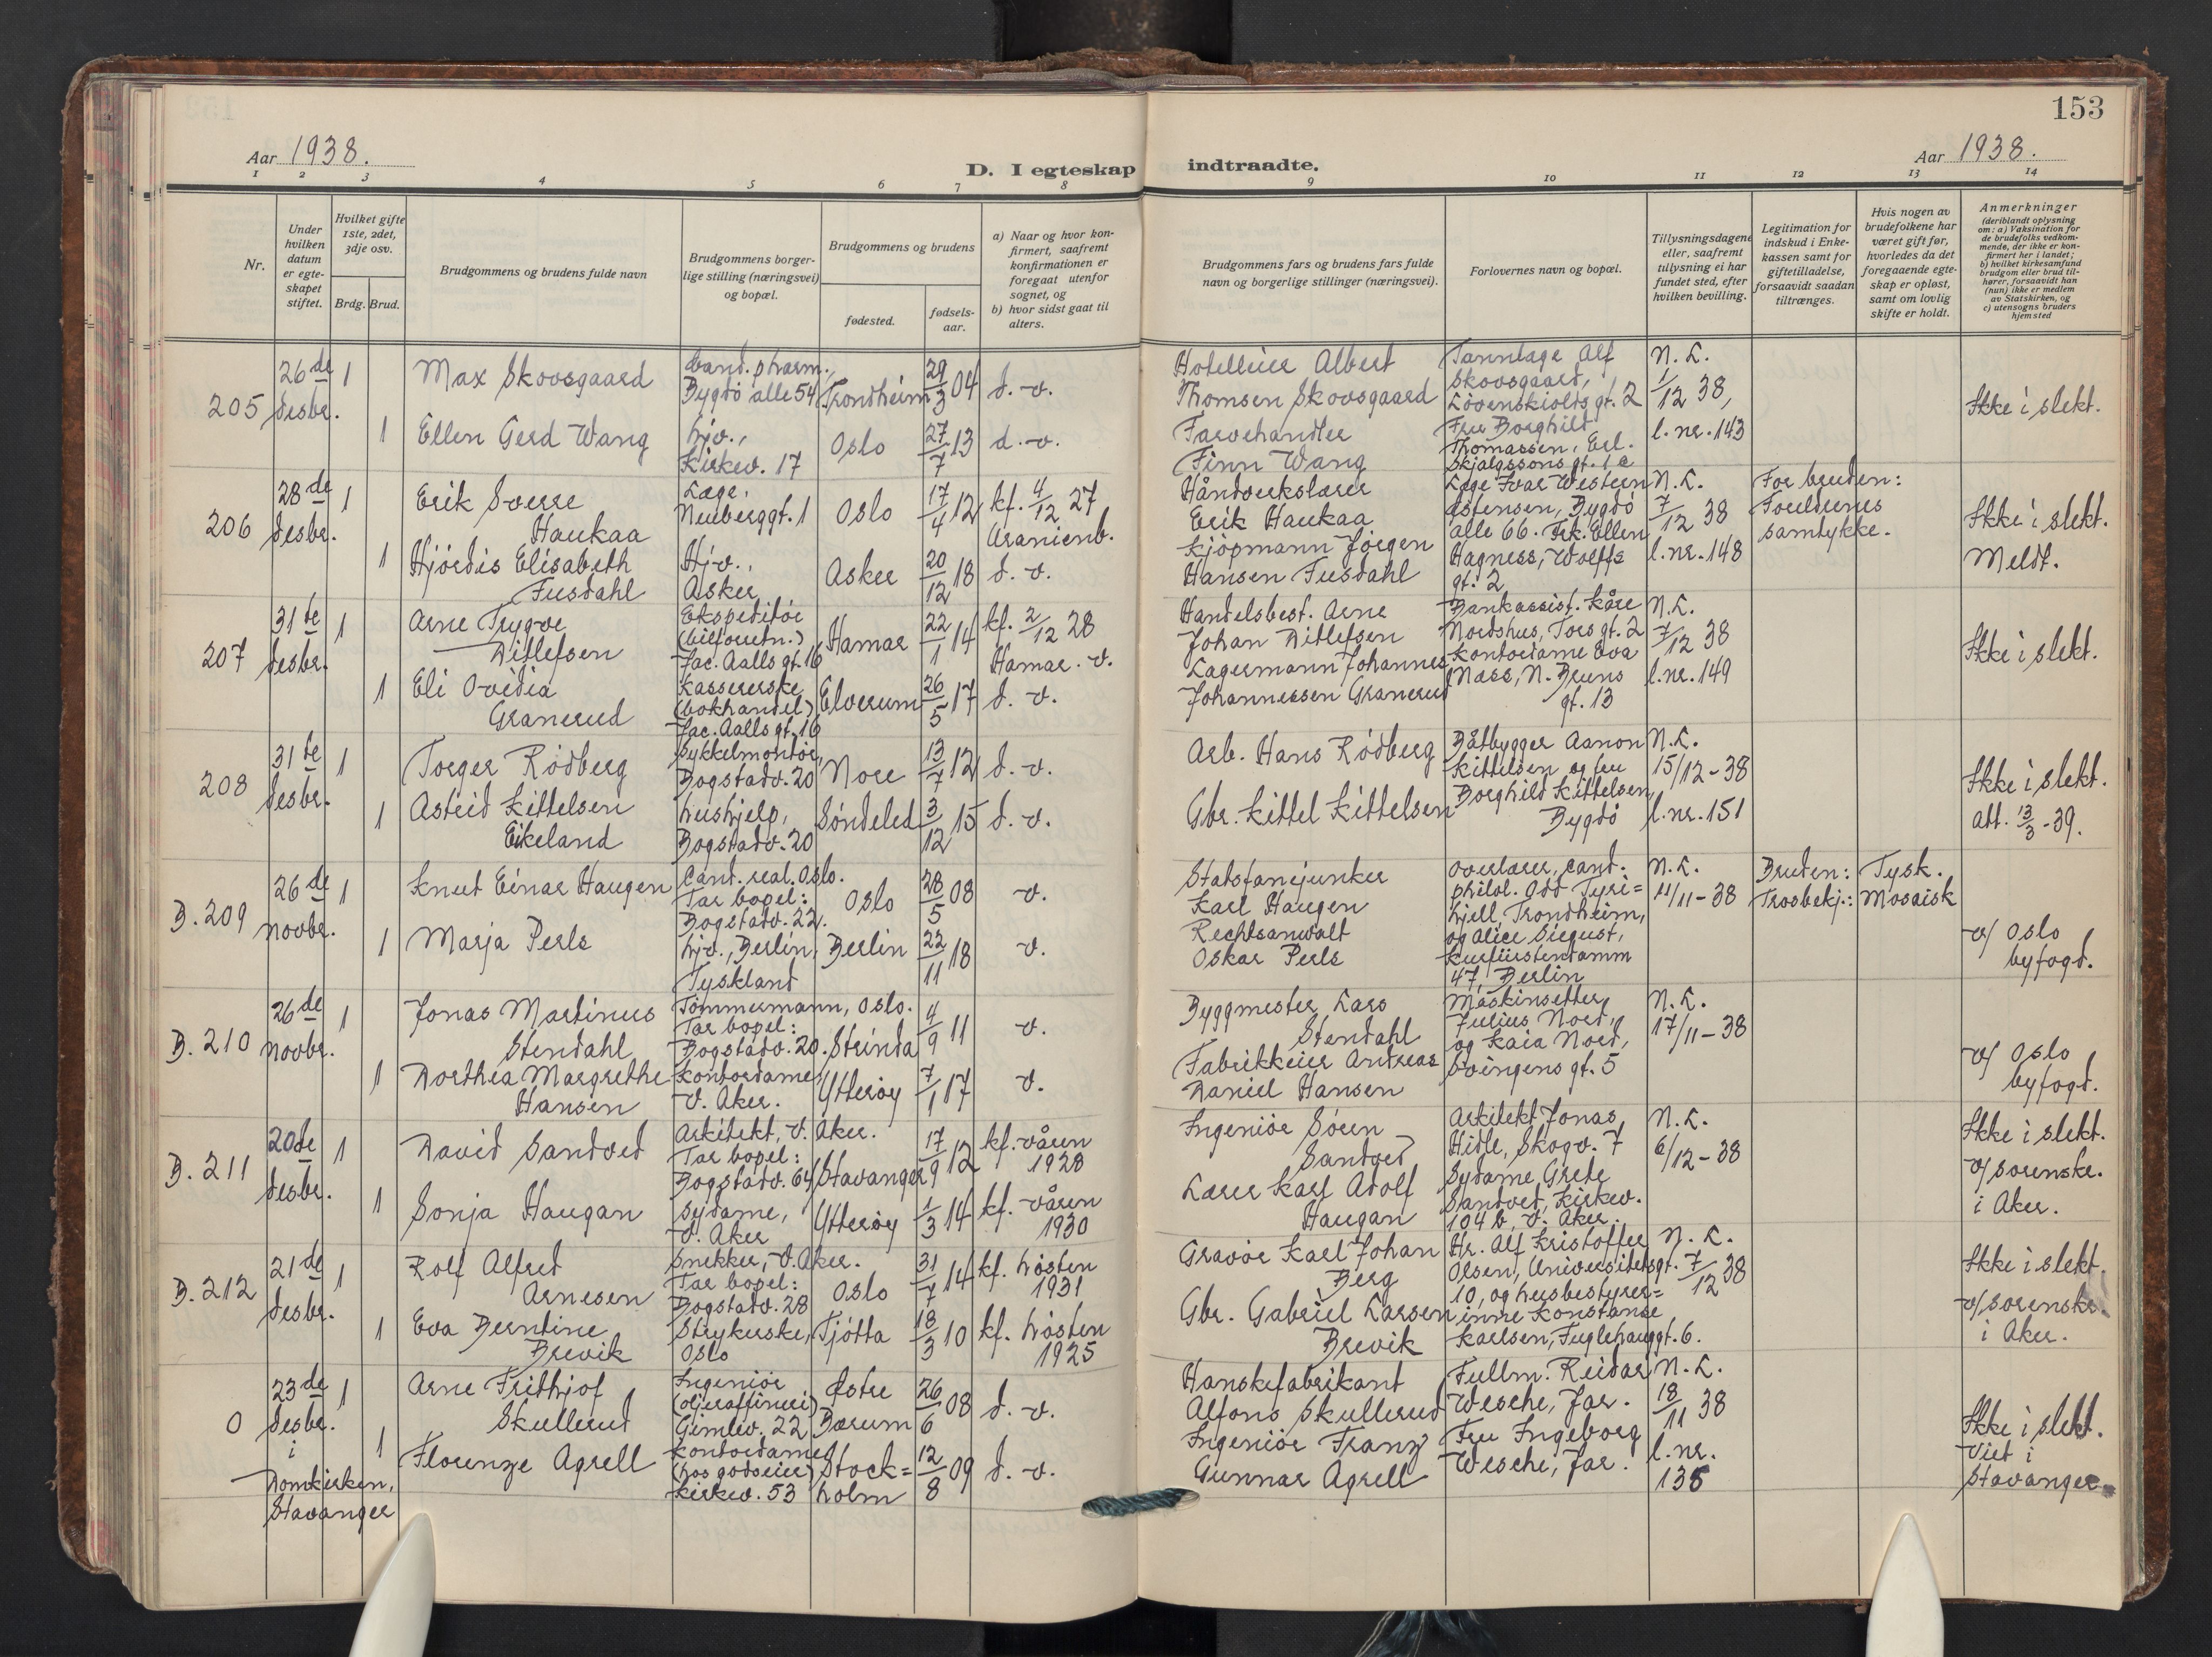 153
Aar 1938.
D. I egteskap indtraadte.
Aar 1938.
1 2 3 4 5 6 7 8 9 10 11 12 13 14
Nr.
Under hvilken datum er egteskapet stiftet.
Hvilket gifte 1ste, 2det, 3dje osv.
Brdg. Brud.
Brudgommens og brudens fulde navn
Brudgommens borgerlige stilling (næringsvei) og bopæl.
Brudgommens og brudens
fødested.
fødselsaar.
a) Naar og hvor konfirmert, saafremt konfirmationen er foregaat utenfor sognet, og
b) hvor sidst gaat til alters.
Brudgommens fars og brudens fars fulde navn og borgerlige stillinger (næringsvei).
Forlovernes navn og bopæl.
Tillysningsdagene eller, saafremt tillysning ei har fundet sted, efter hvilken bevilling.
Legitimation for indskud i Enkekassen samt for giftetilladelse, forsaavidt saadan tiltrænges.
Hvis nogen av brudefolkene har været gift før, hvorledes da det foregaaende egteskap er opløst, samt om lovlig skifte er holdt.
Anmerkninger
(deriblandt oplysning om: a) Vaksination for de brudefolks vedkommende, der ikke er konfirmert her i landet;
b) hvilket kirkesamfund brudgom eller brud tilhører, forsaavidt han (hun) ikke er medlem av Statskirken, og
c) utensogns bruders hjemsted
205
26de desbr.
1
Max Skovsgaard
Cand. pharm., Bygdö alle 54
Trondheim
29/3 04
d. v.
Hotelleier Albert Thomsen Skovsgaard
Tannlæge Alf Skovsgaard, Lövenskiolds gt. 2
Fru Borghild Thomassen, Erl. Skjalgssons gt. 1 c
N. L. 1/12 38, l. nr. 143
Ikke i slekt.
1
Ellen Gerd Wang
hjv., Kirkev. 17
Oslo
27/7 13
d. v.
Farvehandler Finn Wang
206
28de desbr.
1
Erik Sverre Haukaa
Læge, Neuberggt. 1
Oslo
17/4 12
kf. 4/12 27 Uranienb.
Håndverkslærer Erik Haukaa
Læge Ivar Western Östensen, Bygdö alle 66. Frk. Ellen Hagness, Wolffs gt. 2
N. L. 7/12 38 l. nr. 148
For bruden: Foreldrenes samtykke.
Ikke i slekt. Meldt.
1
Hjördis Elisabeth Fusdahl
Hjv., Asker
Asker
20/12 18
d. v.
Kjöpmann Jörgen Hansen Fusdahl
207
31te desbr.
1
Arne Trygve Ditlefsen
Ekspeditör (bilforretn.) Jac. Aalls gt. 16
Hamar
22/1 14
kf. 2/12 28 Hamar. v.
Handelsbest. Arne Johan Ditlefsen
Bankassist. Kåre Nordshus, Tors gt. 2 Kontordame Eva Næss, N. Bruns gt. 13
N. L. 7/12 38 l. nr. 149
Ikke i slekt.
1
Eli Ovidia Granerud
Kassererske (bokhandel) Jac. Aalls gt. 16
Elverum
26/5 17
d. v.
Lagermann Johannes Johannessen Granerud
208
31te desbr.
1
Torger Rödberg
Sykkelmontör, Bogstadv. 20
Nore
13/7 12
d. v.
Arb. Hans Rödberg
Båtbygger Aanon Kittelsen og fru Borghild Kittelsen, Bygdö
N. L. 15/12-38 l. nr. 151
Ikke i slekt. Att. 13/3-39.
1
Astrid Kittelsen Eikeland
hushjelp, Bogstadv. 20
Söndeled
3/12 15
d. v.
Gbr. Kittel Kittelsen
B. 209
26de novbr.
1
Knut Einar Haugen
Cand. real. Oslo. Tar bopel: Bogstadv. 22.
Oslo
28/5 08
v.
Statsfanejunker Karl Haugen
Overlærer, cand. philol. Odd Tyrihjell, Trondheim, og Alice Siegust, Kurfürstendamm 47, Berlin
N. L. 11/11-38
Bruden: Tysk. Trosbekj.: Mosaisk
v/ Oslo byfogd.
1
Marja Perls
hjv., Berlin, Tyskland
Berlin
22/11 18
v.
Rechtsanwalt Oskar Perls
B. 210
26de novbr.
1
Jonas Martinus Stendahl
Tömmermann, Oslo. Tar bopel: Bogstadv. 20.
Strinda
4/9 11
v.
Byggmester Lars Stendahl
Maskinsetter Julius Nord, og Kaia Nord, Svingens gt. 5
N. L. 17/11-38
v/ Oslo byfogd.
1
Dorthea Margrethe Hansen
Kontordame, V. Aker.
Ytteröy
7/1 17
v.
Fabrikkeier Andreas Daniel Hansen
B. 211
20de desbr.
1
David Sandved
Arkitekt, V. Aker. Tar bopel: Bogstadv. 64
Stavanger
17/9 12
kf. våren 1928
Ingeniör Sören Sandved
Arkitekt Jonas Hidle, Skogv. 7 Sydame Grete Sandved, Kirkev. 104 b, V. Aker.
N. L. 6/12-38
Ikke i slekt. v/ sorenskr. i Aker.
1
Sonja Haugan
Sydame, V. Aker
Ytteröy
1/3 14
kf. våren 1930
Lærer Karl Adolf Haugan
B. 212
21de desbr.
1
Rolf Alfred Arnesen
Snekker, V. Aker. Tar bopel: Bogstadv. 28
Oslo
31/7 14
kf. hösten 1931
Gravör Karl Johan Berg
Hr. Alf Kristoffer Olsen, Universitetsgt. 10, og husbestyrerinne Konstanse Karlsen, Fuglehauggt. 6.
N. L. 7/12 38
Ikke i slekt. v/ sorenskr. i Aker.
1
Eva Berntine Brevik
Strykerske, Oslo
Tjötta
18/3 10
kf. hösten 1925
Gbr. Gabriel Larsen Brevik
0
23de desbr. i Domkirken, Stavanger
1
Arne Frithjof Skullerud
Ingeniör (oljeraffineri) Gimlev. 22
Östre Bærum
26/6 08
d. v.
Hanskefabrikant Alfons Skullerud
Fullm. Reidar Wesche, Jar. Fru Ingeborg Wesche, Jar.
N. L. 18/11 38 l. nr. 135
Ikke i slekt. Viet i Stavanger.
1
Florenze Agrell
Kontordame (hos godseier) Kirkev. 53
Stockholm
12/8 09
d. v.
Ingeniör Franz Gunnar Agrell